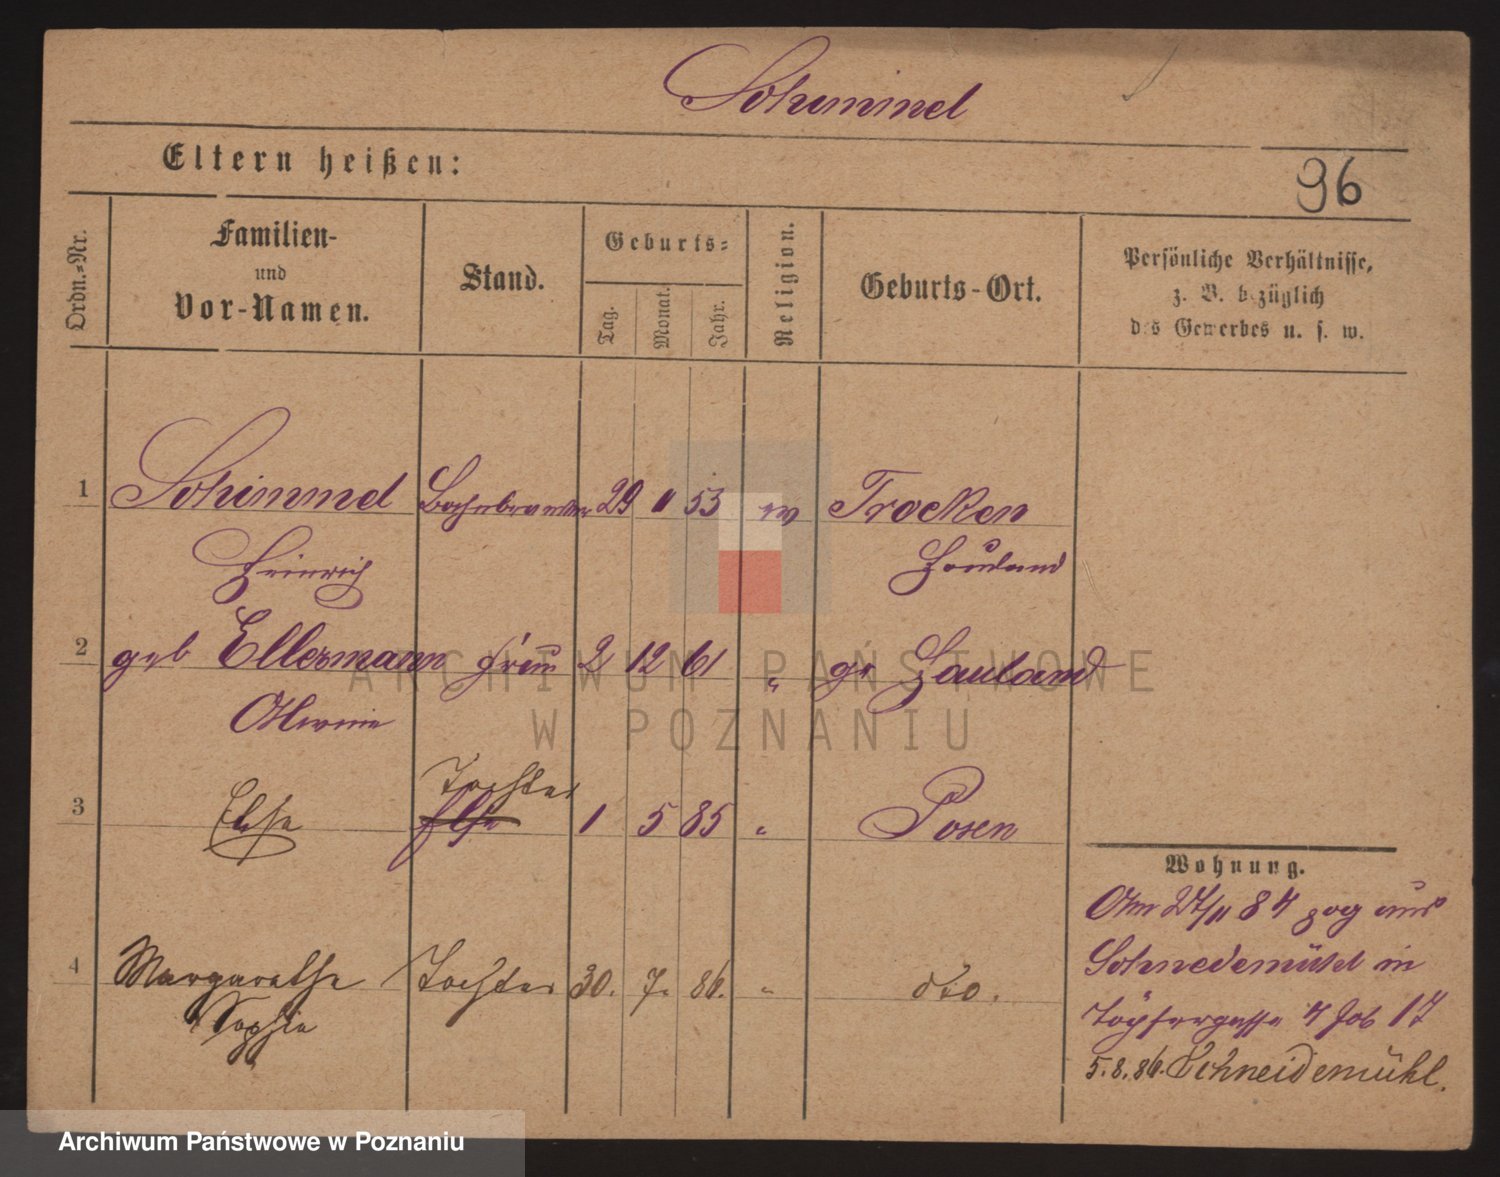 Schimmel
Eltern heißen:
96
Ordn.=Nr.
Familien-
und
Vor-Namen.
Stand.
Geburts=
Tag.
Monat.
Jahr.
Religion.
Geburts-Ort.
Persönliche Verhältnisse,
z. B. bezüglich
des Gewerbes u. s. w.
1 Schimmel 29 11 53 ev Trocken
Heinrich Hauland
2 geb Ellermann Frau 2 12 61 " gr Hauland
Ottwine
Tochter
3 Else Else 1 5 85 " Posen
Wohnung.
Am 27/11 84 zog aus
Schnedemühl in
Töpfergasse 4 Job 17
4 Margarethe Tochter 30. 7. 86. " dto.
Sophie
5.8.86. Schneidemühl.
ARCHIWUM PAŃSTWOWE
W POZNANIU
Archiwum Państwowe w Poznaniu